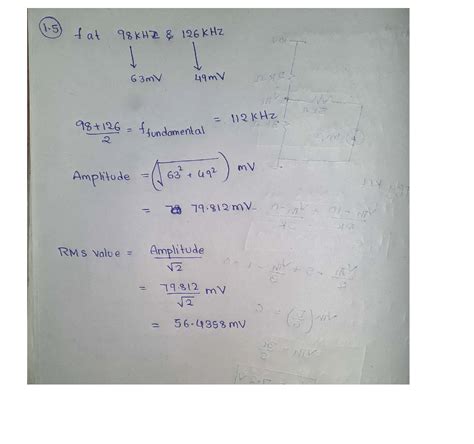 1.5 f at 98KHZ & 126KHz
63mV 49mV
98+126/2 = f fundamental = 112KHZ
Amplitude = (√63² + 49²) mV
= 79.812mV
RMS value = Amplitude/√2
= 79.812/√2 mV
= 56.4358mV